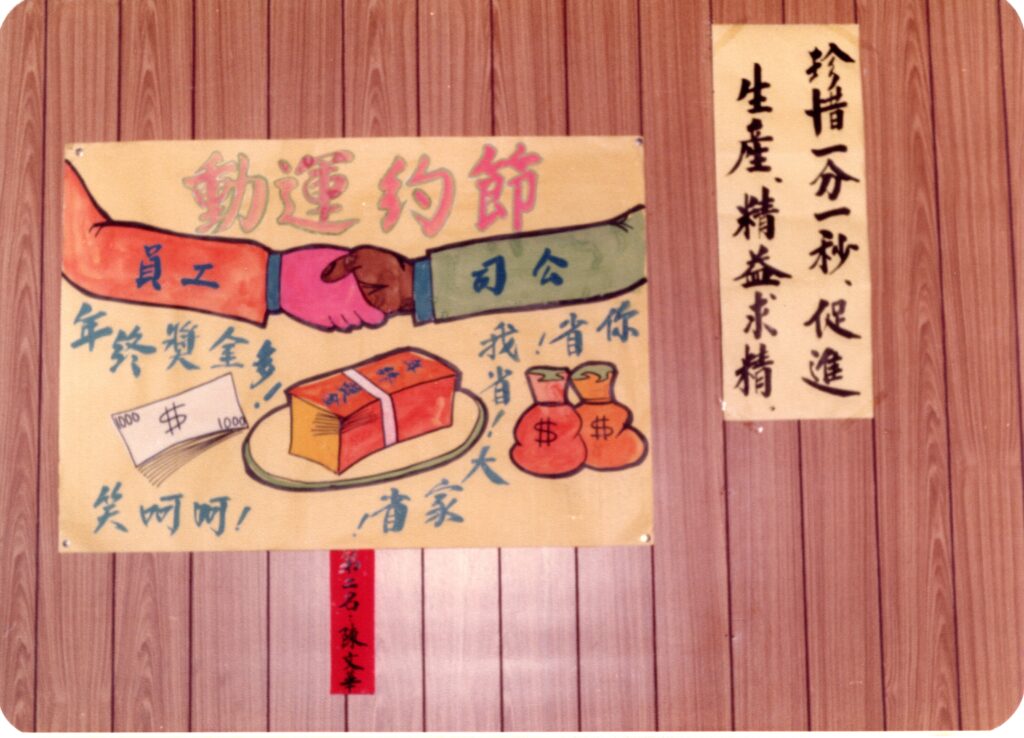 節約運動
員工
公司
你省！我省！大家省！
年終獎金多！！
笑呵呵！
年終獎金
$
1000
1000
$
$
第二名：陳文華
珍惜一分一秒、促進
生產、精益求精